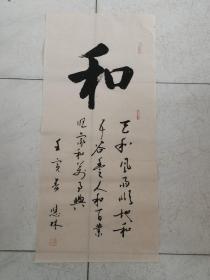 和
天和风雨顺地和
五谷丰人和百業
旺家和万事興
壬寅 恩林